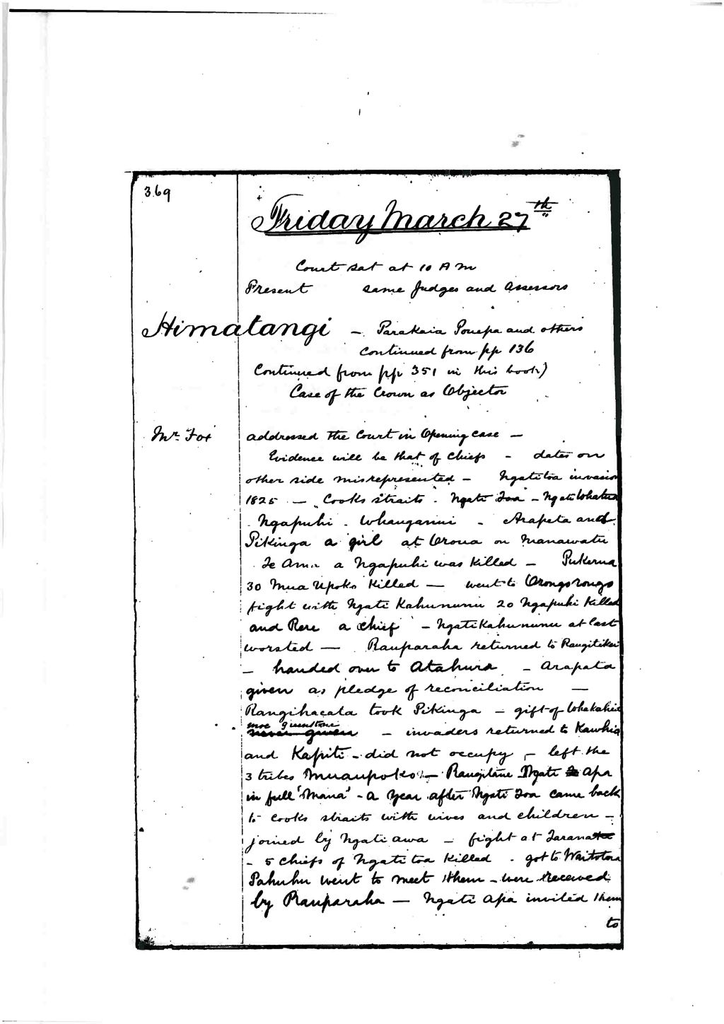 369
Friday March 27th
Court sat at 10 AM
Present same Judges and Assessors
Himatangi - Parakaia Pouepa and others
Continued from pp 136
Continued from pp 351 in this book)
Case of the Crown as Objector
Mr. Fox addressed the Court in Opening case -
Evidence will be that of Chiefs - dates on
other side misrepresented - Ngatitoa invasion
1825 - Cooks straits - Ngati Toa - Ngatiwhatua
Ngapuhi - Whanganui - Arapata and
Pikinga a girl at Oroua on Manawatu
a Ngapuhi was killed - Pukerua
30 Mua Upoko Killed - went to Orongorongo
fight with Ngati Kahununu 20 Ngapuhi Killed
and Rere a chief - Ngati Kahununu at last
worsted - Rauparaha returned to Rangitikei
- handed over to Atahura - Arapata
given as pledge of reconciliation -
Rangihaeata took Pikinga - gift of
- invaders returned to Kawhia
and Kapiti - did not occupy - left the
3 tribes Muaupoko - Rangitane Ngati Apa
in full 'Mana' - a year after Ngati Toa came back
to Cooks straits with wives and children -
joined by Ngatiawa - fight at
- 5 chiefs of Ngatitoa killed - got to Waitotara
Pahuhu went to meet them - were received
by Rauparaha - Ngati Apa invited them
to